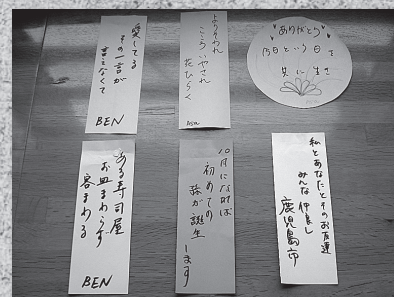 愛してる
その一言が
言えなくて
BEN
ようそわれ
こころいやされ
花ひらく
ASA
ありがとう
今日という日を
共に生き
ある寿司屋
お皿まわらず
客まわる
BEN
10月になれば
初めての
孫が誕生
します
私とあなたとそのお友達
みんな仲良し
鹿児島市